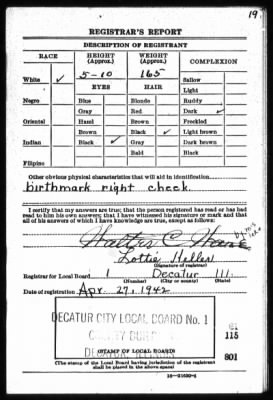 19
REGISTRAR'S REPORT
DESCRIPTION OF REGISTRANT
RACE HEIGHT (Approx.) WEIGHT (Approx.) COMPLEXION
White ✓ 5-10 165 Sallow
EYES HAIR Light
Negro Blue Blonde Ruddy
Gray Red Dark ✓
Oriental Hazel Brown Freckled
Brown Black ✓ Light brown
Indian Black ✓ Gray Dark brown
Bald Black
Filipino
Other obvious physical characteristics that will aid in identification
birthmark right cheek.
I certify that my answers are true; that the person registered has read or has had
read to him his own answers; that I have witnessed his signature or mark and that
all of his answers of which I have knowledge are true, except as follows:
Walter C
Lottie Heller
(Signature of registrar)
Registrar for Local Board 1 Decatur Ill.
(Number) (City or county) (State)
Date of registration Apr 27, 1942
DECATUR CITY LOCAL BOARD No. 1
COUNTY
115
801
(STAMP OF LOCAL BOARD)
(The stamp of the Local Board having jurisdiction of the registrant
shall be placed in the above space)